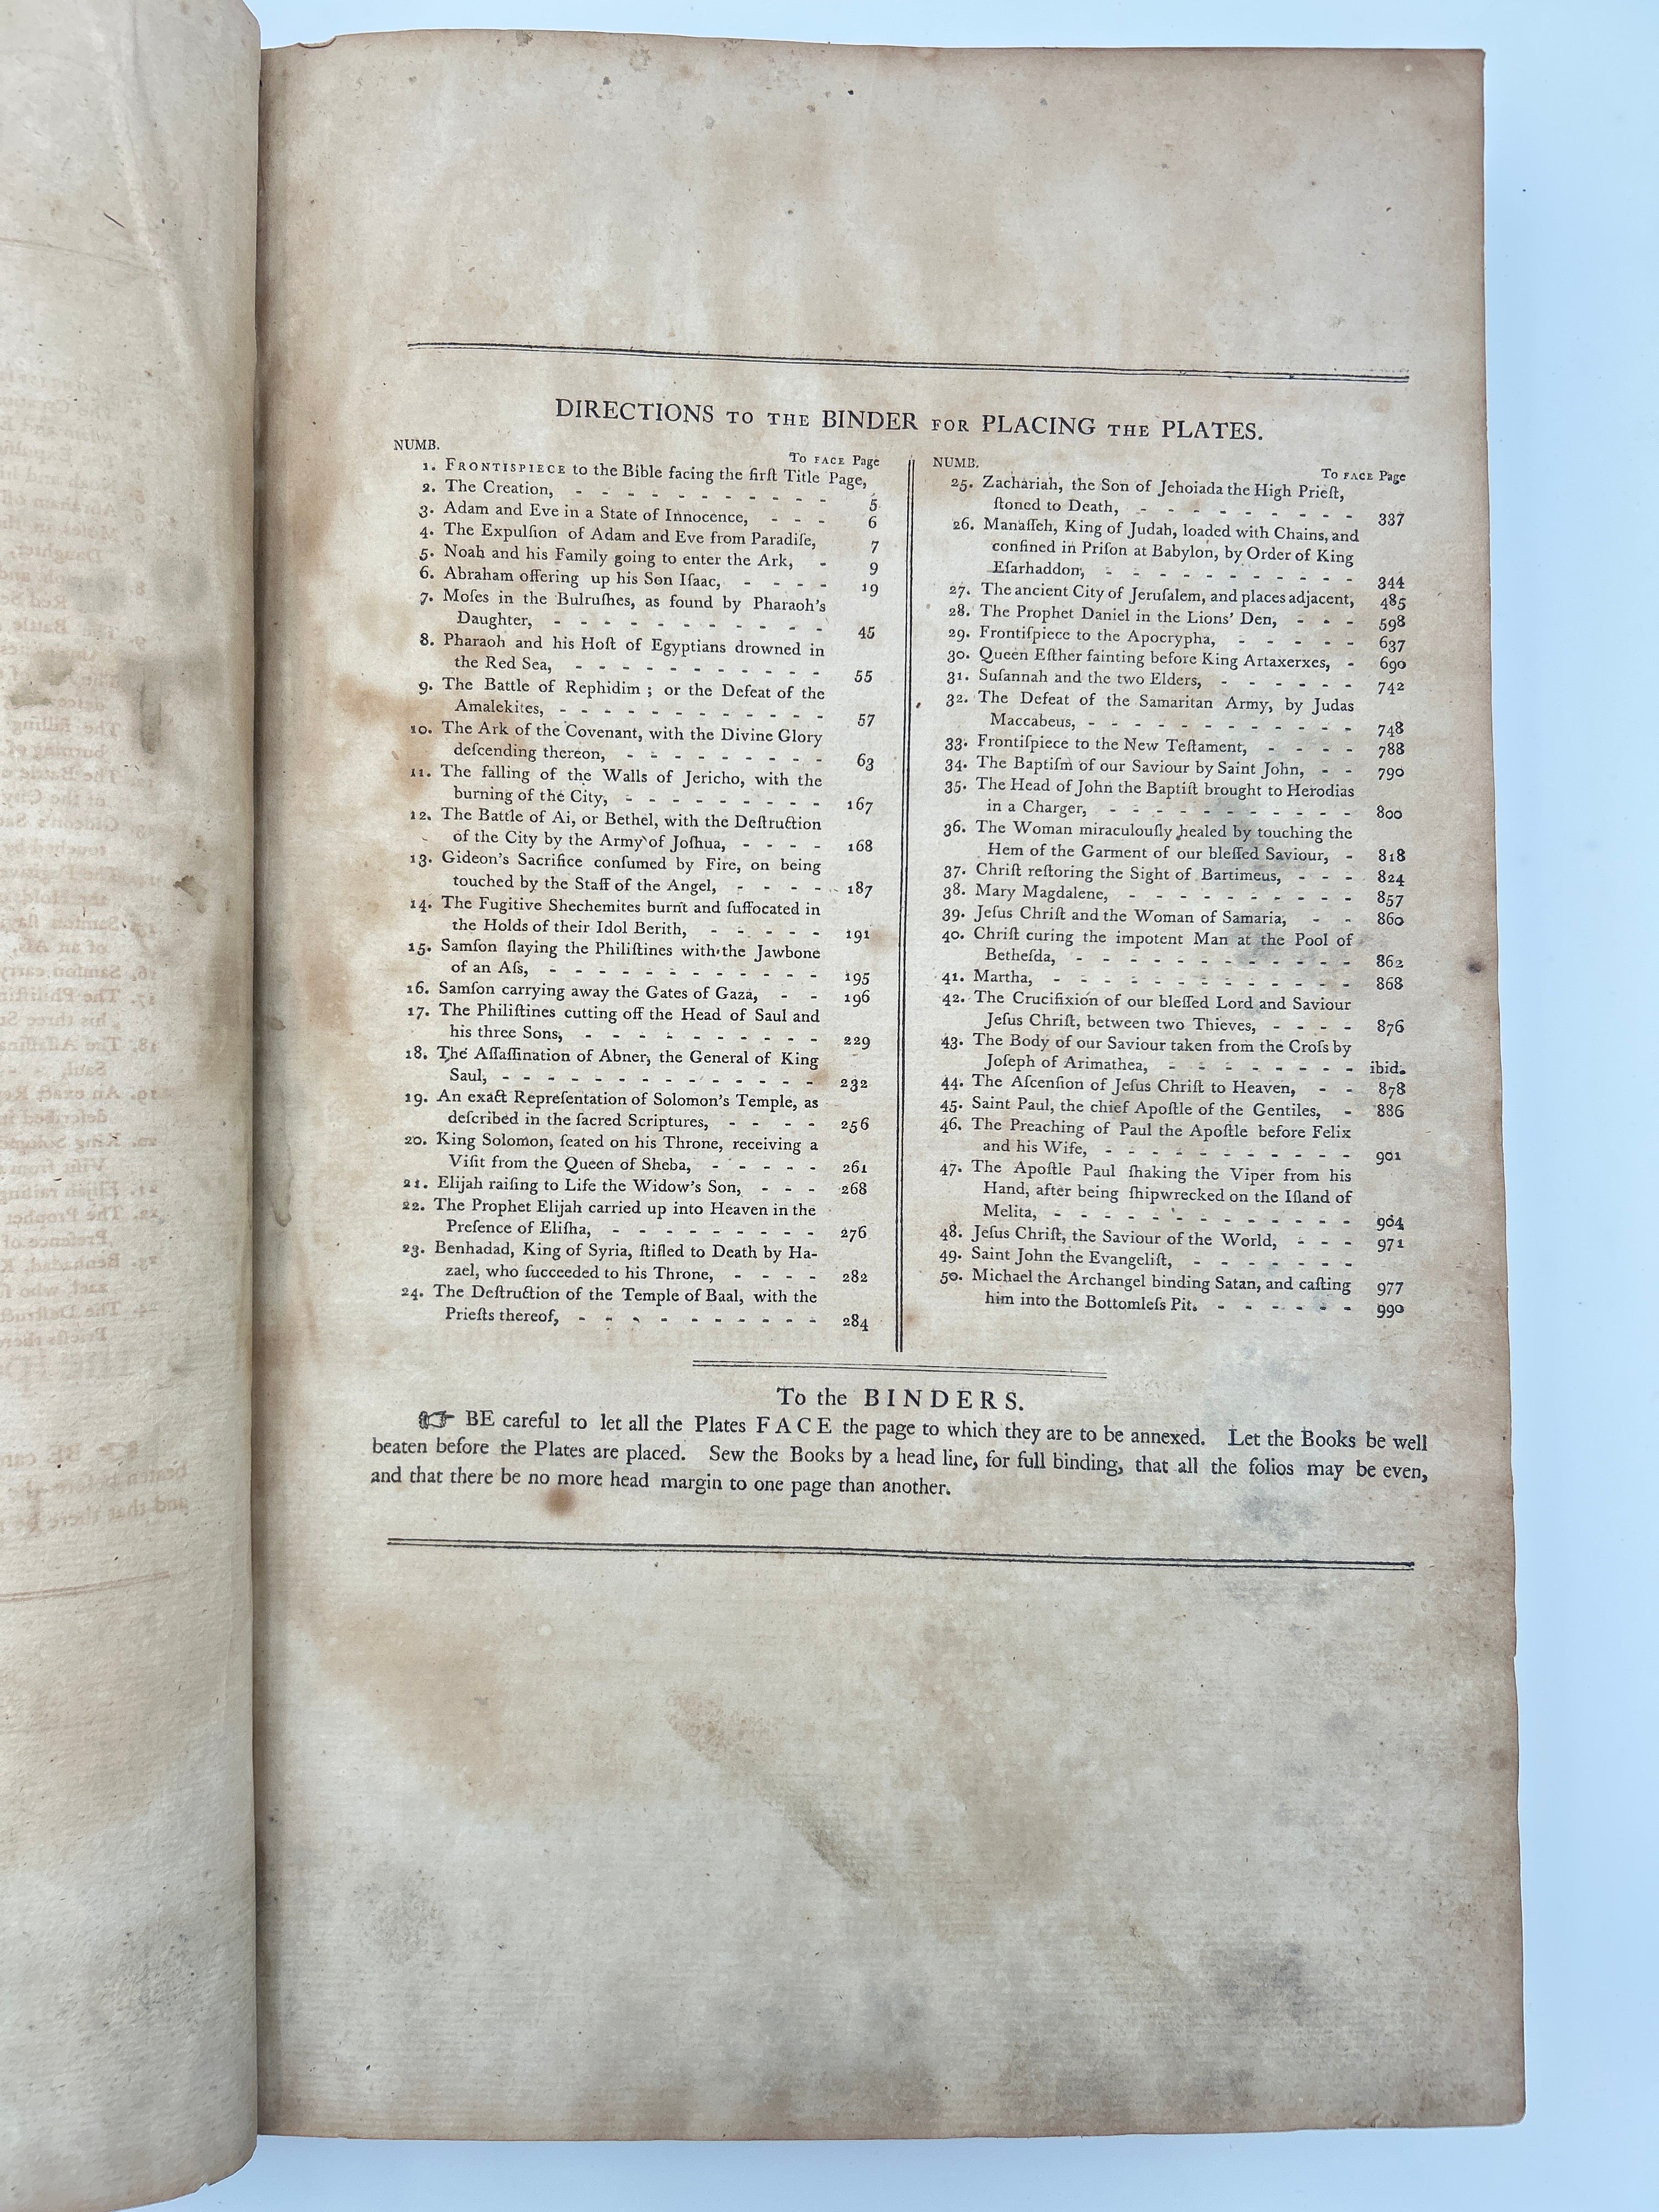 DIRECTIONS TO THE BINDER FOR PLACING THE PLATES.
NUMB.
To FACE Page
1. FRONTISPIECE to the Bible facing the firſt Title Page,
2. The Creation, - - - - - - - - - - 5
3. Adam and Eve in a State of Innocence, - - - 6
4. The Expulſion of Adam and Eve from Paradiſe, 7
5. Noah and his Family going to enter the Ark, - 9
6. Abraham offering up his Son Iſaac, - - - - 19
7. Moſes in the Bulruſhes, as found by Pharaoh's
Daughter, - - - - - - - - - - - 45
8. Pharaoh and his Hoſt of Egyptians drowned in
the Red Sea, - - - - - - - - - - 55
9. The Battle of Rephidim ; or the Defeat of the
Amalekites, - - - - - - - - - - - 57
10. The Ark of the Covenant, with the Divine Glory
deſcending thereon, - - - - - - - - 63
11. The falling of the Walls of Jericho, with the
burning of the City, - - - - - - - - 167
12. The Battle of Ai, or Bethel, with the Deſtruction
of the City by the Army of Joſhua, - - - - 168
13. Gideon's Sacrifice conſumed by Fire, on being
touched by the Staff of the Angel, - - - - 187
14. The Fugitive Shechemites burnt and ſuffocated in
the Holds of their Idol Berith, - - - - - 191
15. Samſon ſlaying the Philiſtines with the Jawbone
of an Aſs, - - - - - - - - - - - 195
16. Samſon carrying away the Gates of Gaza, - - 196
17. The Philiſtines cutting off the Head of Saul and
his three Sons, - - - - - - - - - - 229
18. The Aſſaſſination of Abner, the General of King
Saul, - - - - - - - - - - - - - 232
19. An exact Repreſentation of Solomon's Temple, as
deſcribed in the ſacred Scriptures, - - - - 256
20. King Solomon, ſeated on his Throne, receiving a
Viſit from the Queen of Sheba, - - - - - 261
21. Elijah raiſing to Life the Widow's Son, - - - 268
22. The Prophet Elijah carried up into Heaven in the
Preſence of Eliſha, - - - - - - - - - 276
23. Benhadad, King of Syria, ſtifled to Death by Ha-
zael, who ſucceeded to his Throne, - - - - 282
24. The Deſtruction of the Temple of Baal, with the
Prieſts thereof, - - - - - - - - - - 284
NUMB.
To FACE Page
25. Zachariah, the Son of Jehoiada the High Prieſt,
ſtoned to Death, - - - - - - - - - 337
26. Manaſſeh, King of Judah, loaded with Chains, and
confined in Priſon at Babylon, by Order of King
Eſarhaddon, - - - - - - - - - - 344
27. The ancient City of Jeruſalem, and places adjacent, 485
28. The Prophet Daniel in the Lions' Den, - - - 598
29. Frontiſpiece to the Apocrypha, - - - - - 637
30. Queen Eſther fainting before King Artaxerxes, - 690
31. Suſannah and the two Elders, - - - - - - 742
32. The Defeat of the Samaritan Army, by Judas
Maccabeus, - - - - - - - - - - - 748
33. Frontiſpiece to the New Teſtament, - - - - 788
34. The Baptiſm of our Saviour by Saint John, - - 790
35. The Head of John the Baptiſt brought to Herodias
in a Charger, - - - - - - - - - - 800
36. The Woman miraculouſly healed by touching the
Hem of the Garment of our bleſſed Saviour, - 818
37. Chriſt reſtoring the Sight of Bartimeus, - - - 824
38. Mary Magdalene, - - - - - - - - - 857
39. Jeſus Chriſt and the Woman of Samaria, - - 860
40. Chriſt curing the impotent Man at the Pool of
Betheſda, - - - - - - - - - - - 862
41. Martha, - - - - - - - - - - - - 868
42. The Crucifixion of our bleſſed Lord and Saviour
Jeſus Chriſt, between two Thieves, - - - - 876
43. The Body of our Saviour taken from the Croſs by
Joſeph of Arimathea, - - - - - - - - ibid.
44. The Aſcenſion of Jeſus Chriſt to Heaven, - - 878
45. Saint Paul, the chief Apoſtle of the Gentiles, - 886
46. The Preaching of Paul the Apoſtle before Felix
and his Wife, - - - - - - - - - - 901
47. The Apoſtle Paul ſhaking the Viper from his
Hand, after being ſhipwrecked on the Iſland of
Melita, - - - - - - - - - - - - 904
48. Jeſus Chriſt, the Saviour of the World, - - - 971
49. Saint John the Evangeliſt, - - - - - - -
50. Michael the Archangel binding Satan, and caſting 977
him into the Bottomleſs Pit. - - - - - - 990
To the BINDERS.
☞ BE careful to let all the Plates FACE the page to which they are to be annexed. Let the Books be well
beaten before the Plates are placed. Sew the Books by a head line, for full binding, that all the folios may be even,
and that there be no more head margin to one page than another.